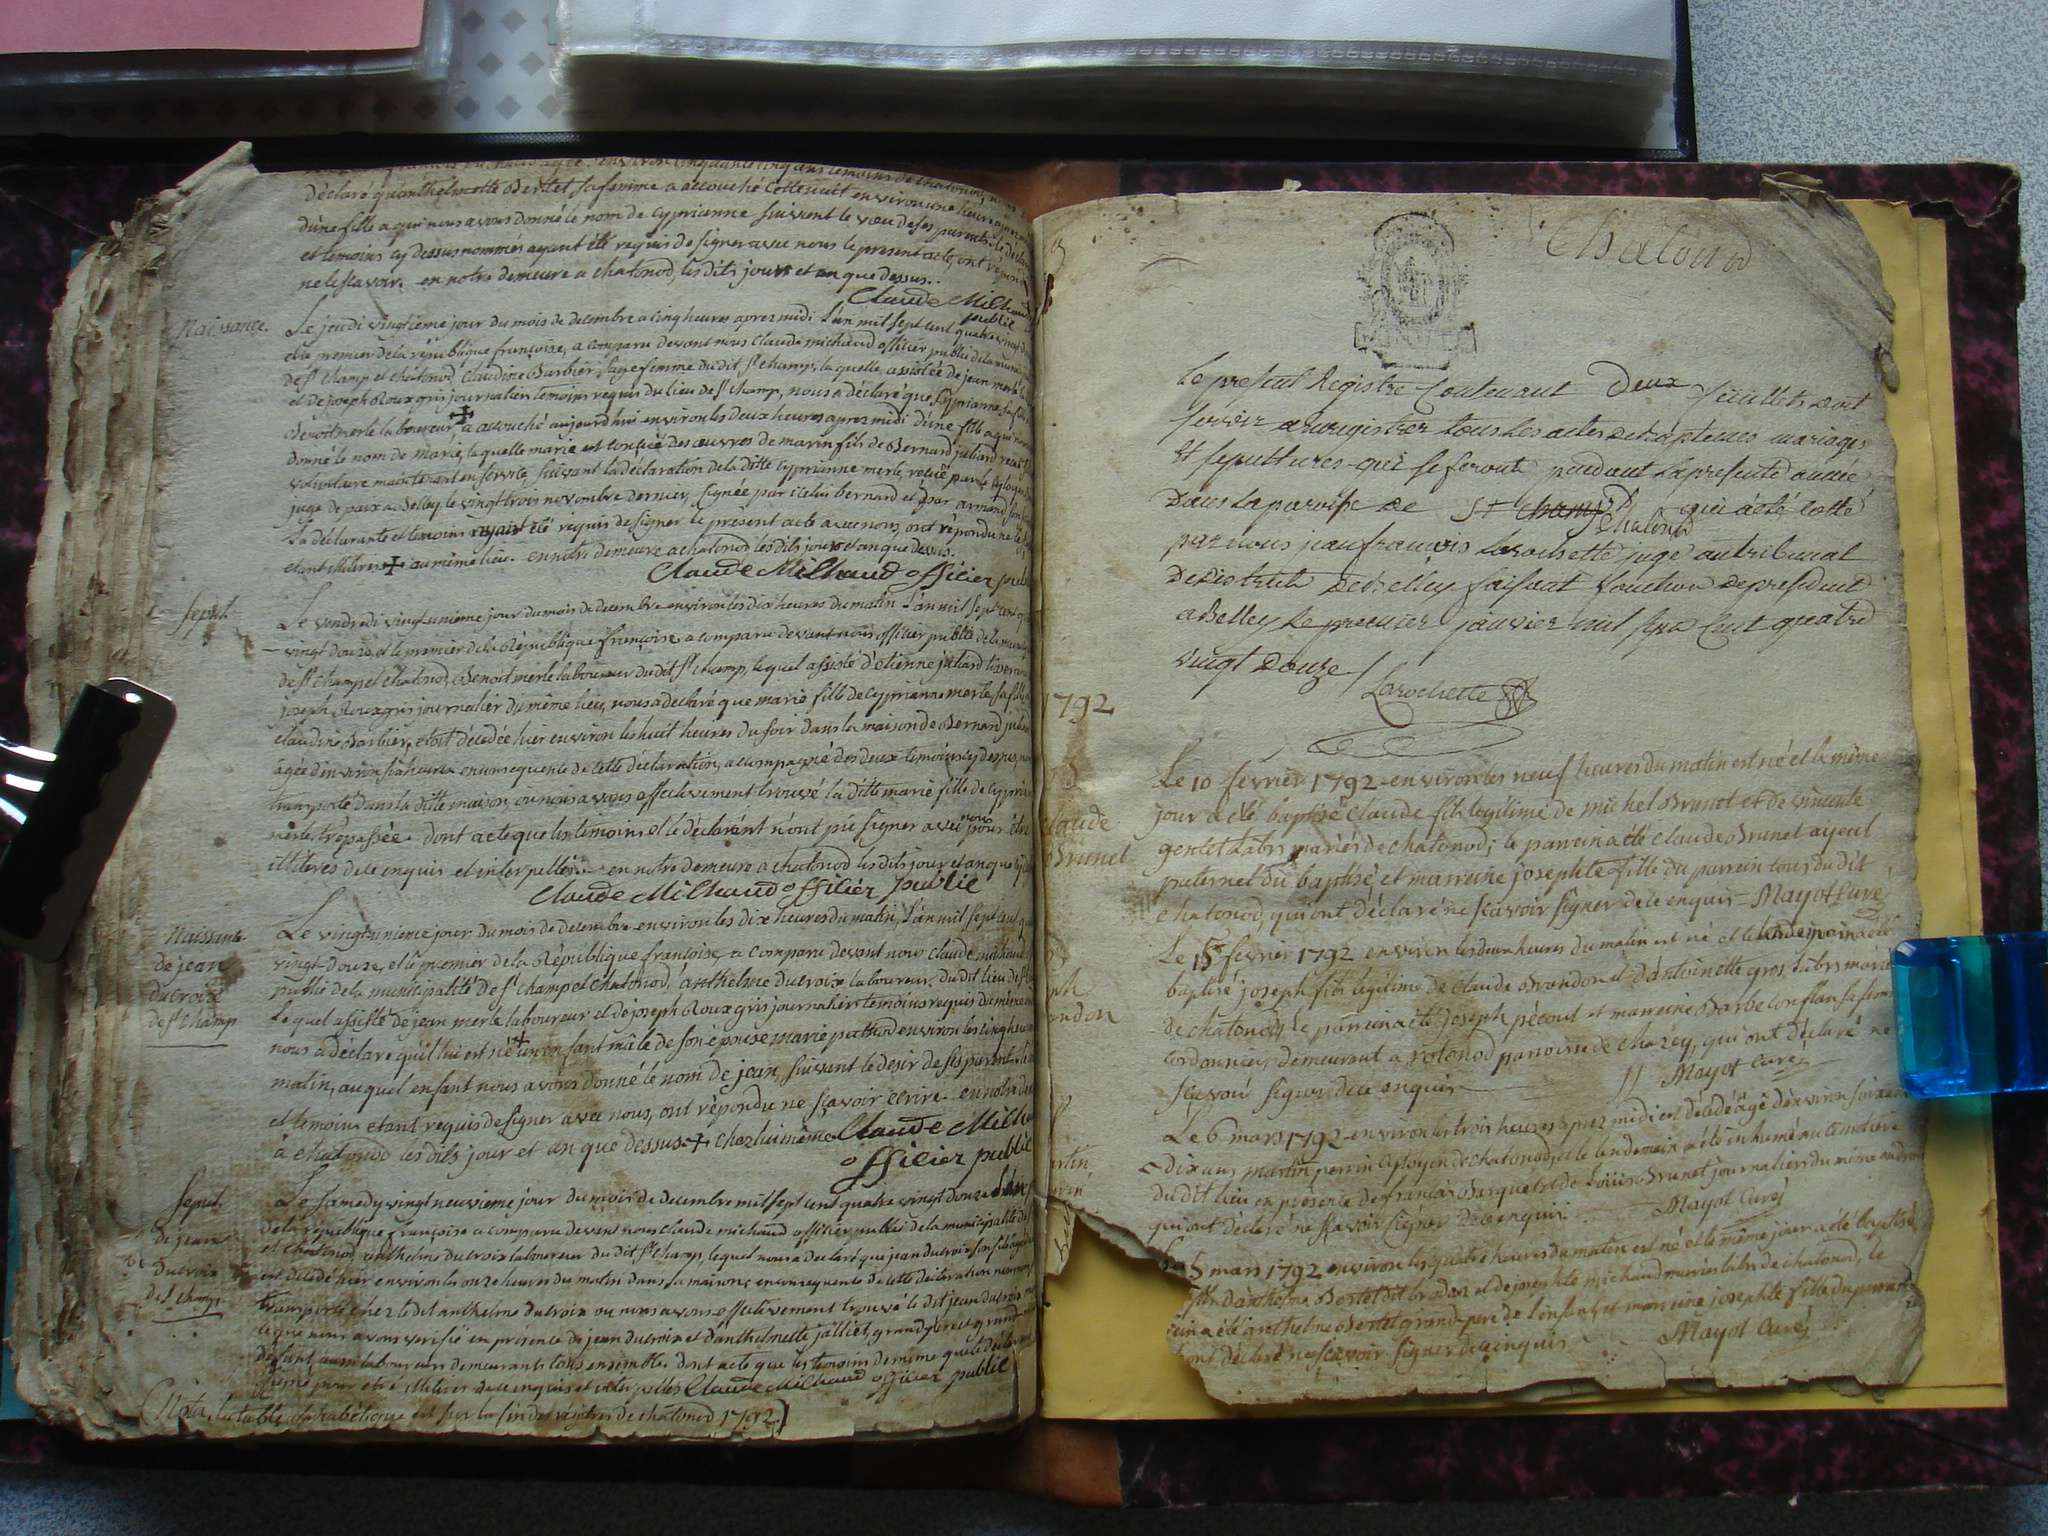 déclaré qu'anthelmette Bertet, sa femme a accouché cette nuit environ une heure
d'une fille a qui nous avons donné le nom de Cyprianne suivent le voeu de ses parents, le
et temoins cy dessus nommés ayant été requis de signer avec nous le present acte, ont répondu
ne le sçavoir. en notre demeure a chatonod, les dits jour et an que dessus.
Claude Milhaud
public
Naissance.
Le jeudi vingtieme jour du mois de decembre a cinq heures aprez midi l'an mil sept cent quatre vingt
et le premier de la république françoise, a comparu devant nous Claude michaud officier public de la
de st champ et chatonod, Claudine Barbier, sage femme du dit st champ, la quelle assistée de jean merle
et de joseph Roux gris journalier temoins requis du lieu de st champ, nous a déclaré que Cyprianne
Benoit merle laboureur a accouché aujourd'hui environ les deux heures aprez midi d'une fille a qui
donné le nom de marie, la quelle marie est conçüe des oeuvres de marin fils de Bernard juliard
volontaire maintenant en service, suivant la déclaration de la ditte Cyprianne merle, recüe par le citoyen
juge de paix a Belley le vingt trois novembre dernier, signée par icelui bernard et par armand
La déclarante et temoins ayant été requis de signer le présent acte avec nous, ont répondu ne le
etant illiteres + au même lieu. en notre demeure a chatonod les dits jour et an que dessus.
Claude Milhaud officier public
sepul.
Le vendredi vingt unieme jour du mois de decembre environ les dix heures du matin l'an mil sept cent
vingt douze, et le premier de la République françoise a comparu devant nous officier public de la
de st champ et chatonod, Benoit merle laboureur du dit st champ, lequel assisté d'etienne juliard
joseph Roux gris journalier du même lieu, nous a déclaré que marie fille de Cyprianne merle, sa fille
claudine Barbier, etoit décedée hier environ les huit heures du soir dans la maison de Bernard
agée d'environ six heures en consequence de cette déclaration, accompagné des deux temoins cy dessus,
transporté dans la ditte maison, ou nous avons effectivement trouvé la ditte marie fille de
merle, trépassée. dont acte que les temoins et le déclarent n'ont pu signer avec nous
illiteres de ce enquis et interpellés. en notre demeure a chatonod les dits jour et an que
Claude Milhaud officier public
Naissance
de jean
ducroix
de st champ
Le vingt unieme jour du mois de decembre environ les dix heures du matin, l'an mil sept cent
vingt-douze, et le premier de la République françoise, a comparu devant nous claude michaud
public de la municipalité de st champ et chatonod, anthelme ducroix laboureur du dit lieu de
lequel assisté de jean merle laboureur et de joseph Roux gris journalier temoins requis du même
nous a déclaré qu'il lui est né + un enfant mâle de son épouse marie pattard environ les cinq heures
matin, auquel enfant nous avons donné le nom de jean, suivant le desir de ses parents
et temoins etant requis de signer avec nous, ont répondu ne sçavoir ecrire. en notre
a chatonod les dits jour et an que dessus + chez lui même Claude Milhaud
officier public
sepul.
de jean
ducroix
de st champ
Le samedy vingt neuvieme jour du mois de decembre mil sept cent quatre vingt douze
de la république françoise a comparu devant nous claude michaud officier public de la municipalité de
et chatonod anthelme ducroix laboureur du dit st champ, lequel nous a declaré que jean ducroix son fils
est décedé hier environ les onze heures du matin dans sa maison; en consequence de cette déclaration
transporté chez le dit anthelme ducroix ou nous avons effectivement trouvé le dit jean ducroix
ce que nous avons verifié en présence de jean ducroix et d'anthelmette jalliet, grand pere et grand
defunt aussi laboureurs demeurants tous ensemble. dont acte que les temoins de meme que le
signé pour etre illiteres de ce enquis et interpellés Claude Milhaud officier public
Nota, la table alphabétique est sur la fin des regitres de chatonod 1792
Chatonod
Le present Registre Contenant deux feüillets doit
servir a enregistrer tous les actes de baptemes mariages
Et sepultures qui se feront pendant la presente année
Dans la paroisse de St champ chatonod qui a été cotté
par nous jean françois Larochette juge au tribunal
de district de belley faisant fonction de president
a Belley le premier janvier mil sept Cent quatre
vingt douze /
Larochette
1792
claude
Brunet
Le 10 fevrier 1792 environ les neuf heures du matin est né et le même
jour a eté baptisé Claude fils légitime de michel Brunet et de vincente
gentet labrs mariés de chatonod; le parrein a été claude Brunet ayeul
paternel du baptisé et marreine josephte fille du parrein tous du dit
chatonod, qui ont déclaré ne sçavoir signer de ce enquis - Mayot Curé
Le 15 fevrier 1792 environ les deux heures du matin est né et le lendemain a été
baptisé joseph fils légitime de claude Brondon et d'antoinette gros labrs mariés
de chatonod; le parrein a été joseph pécout et marreine Barbe Conflan sa femme
cordonnier, demeurant a rotonod paroisse de chazey, qui ont déclaré ne
sçavoir signer de ce enquis Mayot Curé
Le 6 mars 1792 environ les trois heures aprez midi est décedé agé d'environ soixante
dix ans martin perrin citoyen de chatonod, et le lendemain a été inhumé au cimetiere
du dit lieu en présence de françois Barquet et de Loüis Brunet journaliers du même endroit
qui ont déclaré ne sçavoir signer de ce enquis. Mayot Curé
5 mars 1792 environ les quatre heures du matin est né et le même jour a été baptisé
fils d'anthelme Bertet dit brodaz et de josephte michaud mariés labrs de chatonod, le
a été anthelme Bertet grand-pere de l'enfant, et marreine josephte fille du parrein
ont déclaré ne sçavoir signer de ce enquis. Mayot Curé